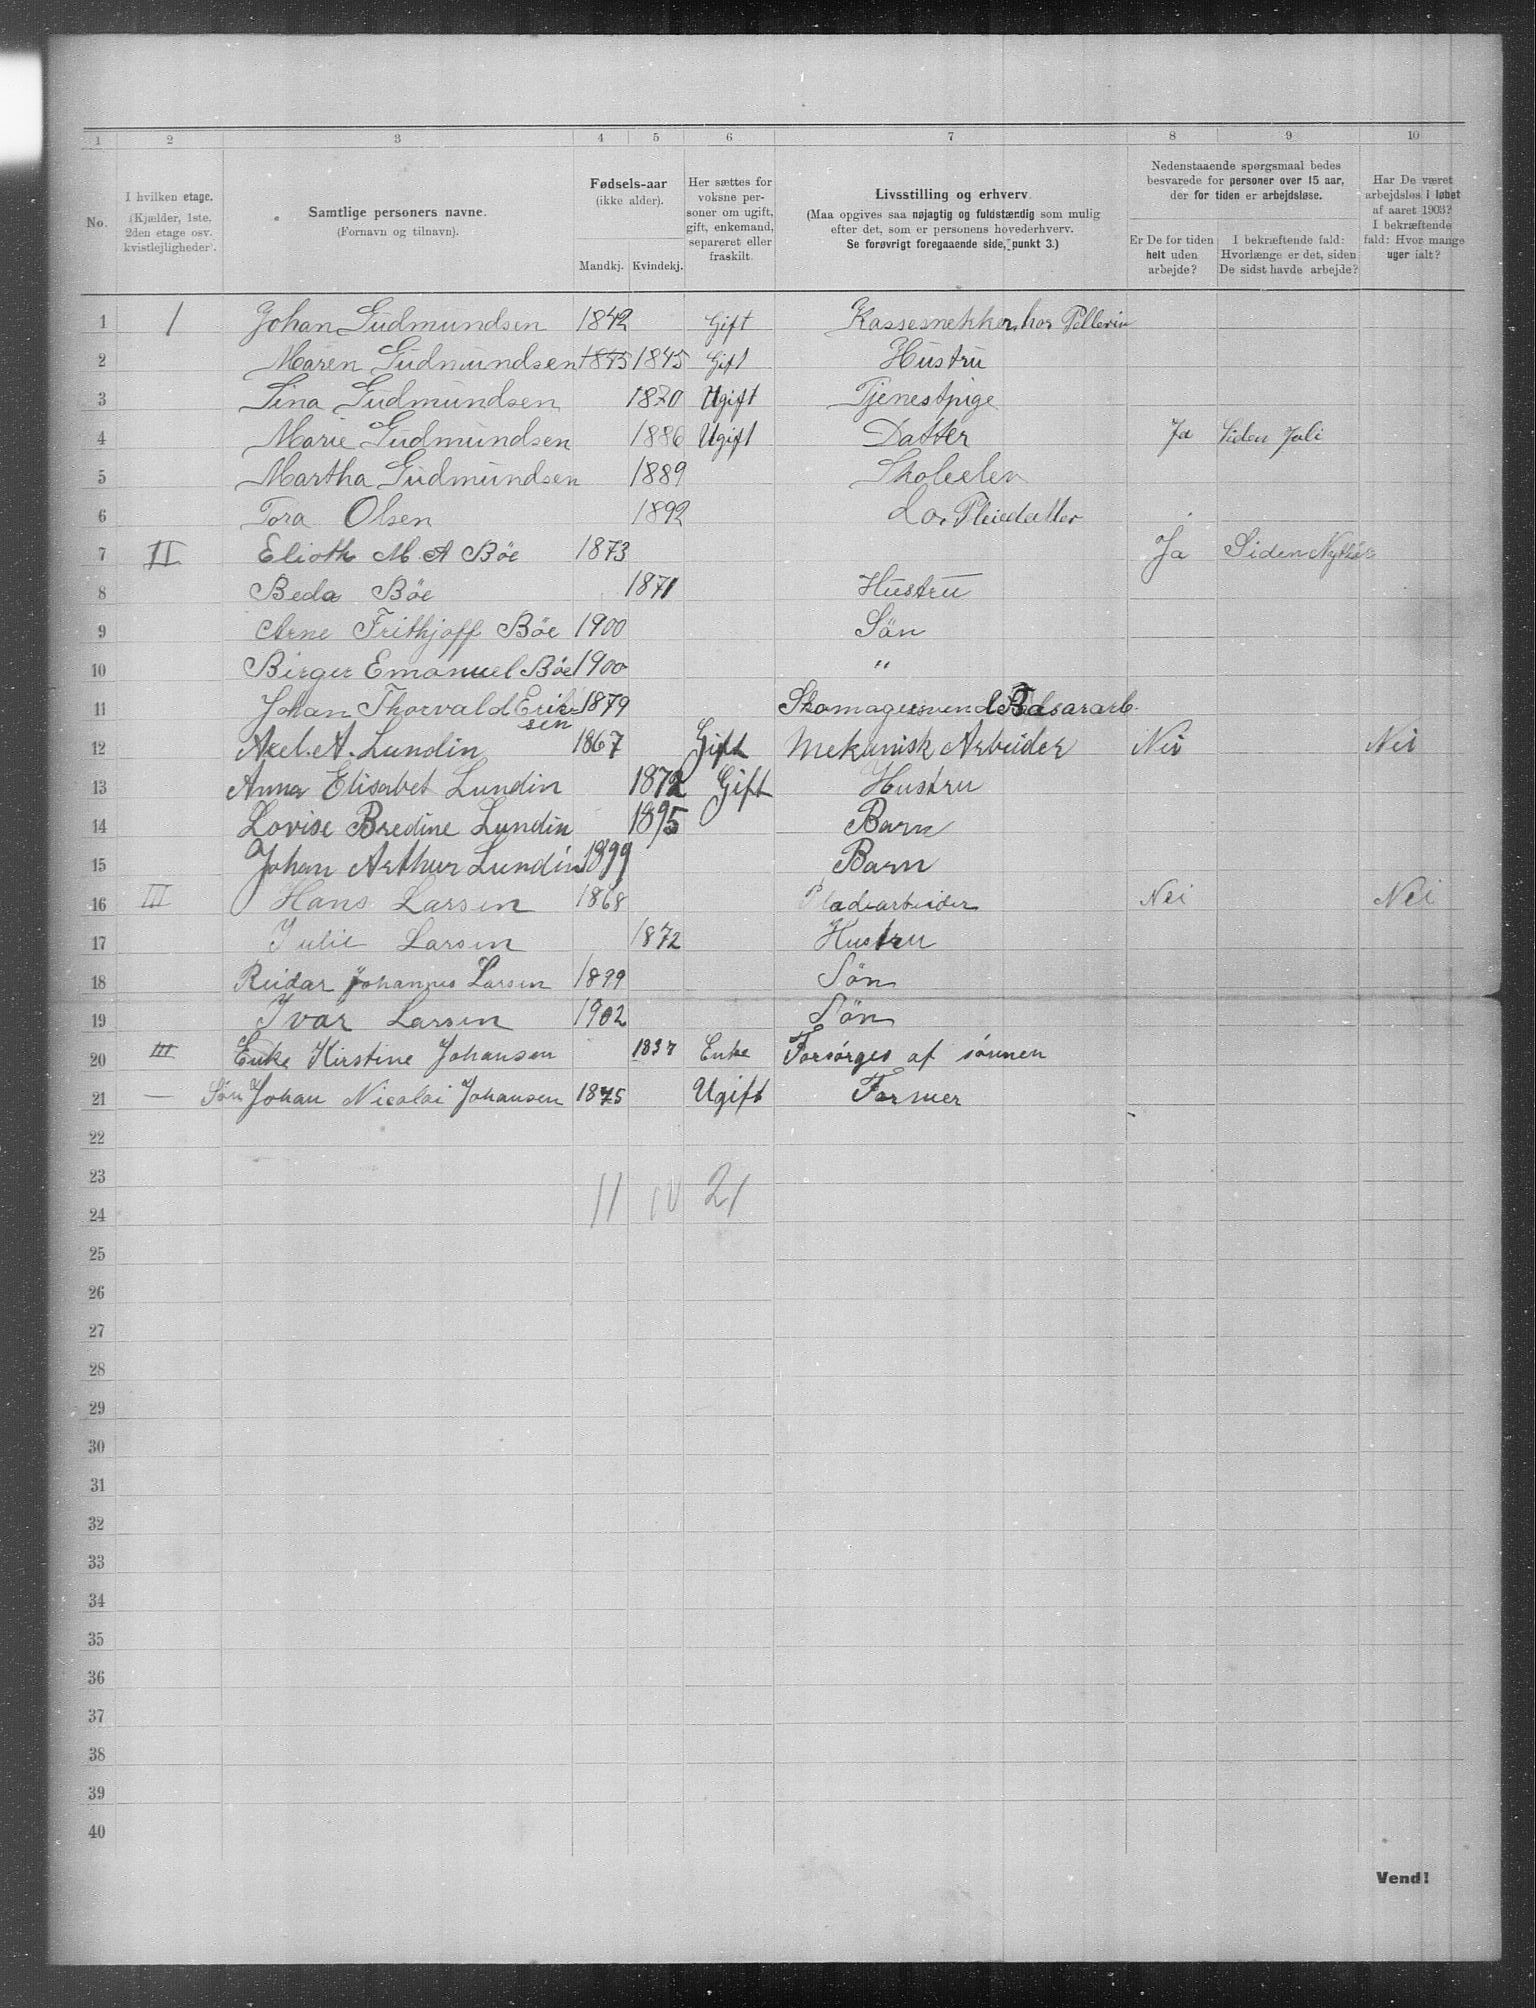 1 2 3 4 5 6 7 8 9 10
No.
I hvilken etage.
(Kjælder, 1ste.
2den etage osv.
kvistlejligheder).
Samtlige personers navne.
(Fornavn og tilnavn).
Fødsels-aar
(ikke alder).
Mandkj. Kvindekj.
Her sættes for
voksne per-
soner om ugift,
gift, enkemand,
separeret eller
fraskilt.
Livsstilling og erhverv.
(Maa opgives saa nøjagtig og fuldstændig som mulig
efter det, som er personens hovederhverv.
Se forøvrigt foregaaende side, punkt 3.)
Nedenstaaende spørgsmaal bedes
besvarede for personer over 15 aar,
der for tiden er arbejdsløse.
Er De for tiden
helt uden
arbejde?
I bekræftende fald:
Hvorlænge er det, siden
De sidst havde arbejde?
Har De været
arbejdsløs i løbet
af aaret 1903?
I bekræftende
fald: Hvor mange
uger ialt?
1 1 Johan Gudmundsen 1842 Gift Kassesnekker hos Pellerin
2 Maren Gudmundsen 1845 1845 Gift Hustru
3 Lina Gudmundsen 1870 Ugift Tjenestpige
4 Marie Gudmundsen 1886 Ugift Datter Ja Siden Juli
5 Martha Gudmundsen 1889 Skoleelev
6 Tora Olsen 1892 Do. Pleiedatter
7 II Elioth M A Böe 1873 Ja Siden Nytår
8 Beda Böe 1871 Hustru
9 Arne Frithjoff Böe 1900 Sön
10 Birger Emanuel Böe 1900 "
11 Johan Thorvald Erik-
sen 1879 Skomagersvend
12 Axel. A. Lundin 1867 Gift Mekanisk Arbeider Nei Nei
13 Anna Elisabet Lundin 1872 Gift Hustru
14 Lovise Bredine Lundin 1895 Barn
15 Johan Arthur Lundin 1899 Barn
16 III Hans Larsen 1868 Pladearbeider Nei Nei
17 Julie Larsen 1872 Hustru
18 Reidar Johannes Larsen 1899 Sön
19 Ivar Larsen 1902 Sön
20 III Enke Kirstine Johansen 1837 Enke Forsörges af sönnen
21 — Sön Johan Nicolai Johansen 1875 Ugift Former
22
23
11 10 21
24
25
26
27
28
29
30
31
32
33
34
35
36
37
38
39
40
Vend!